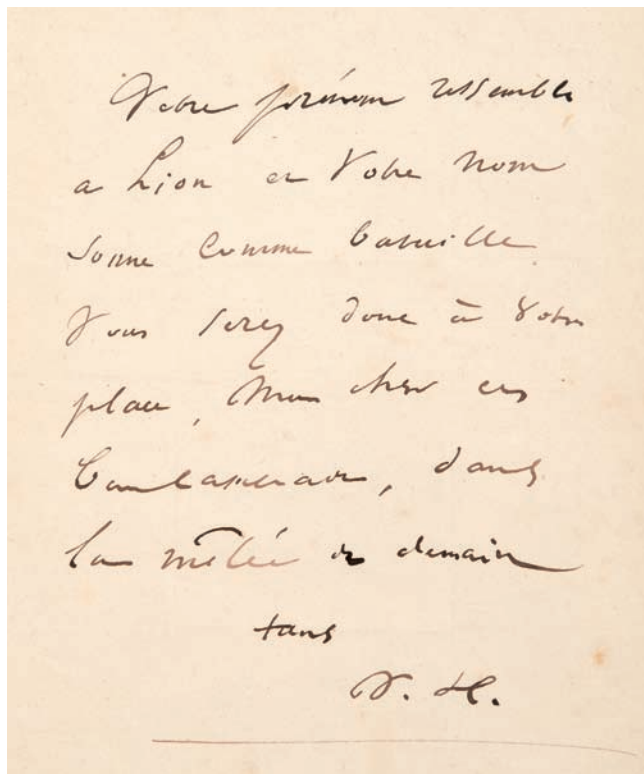 Votre prénom ressemble
a Lion et Votre nom
sonne comme bataille
Vous serez donc à Votre
place, Mon cher
, dans
la mêlée de demain
tuus
V. H.